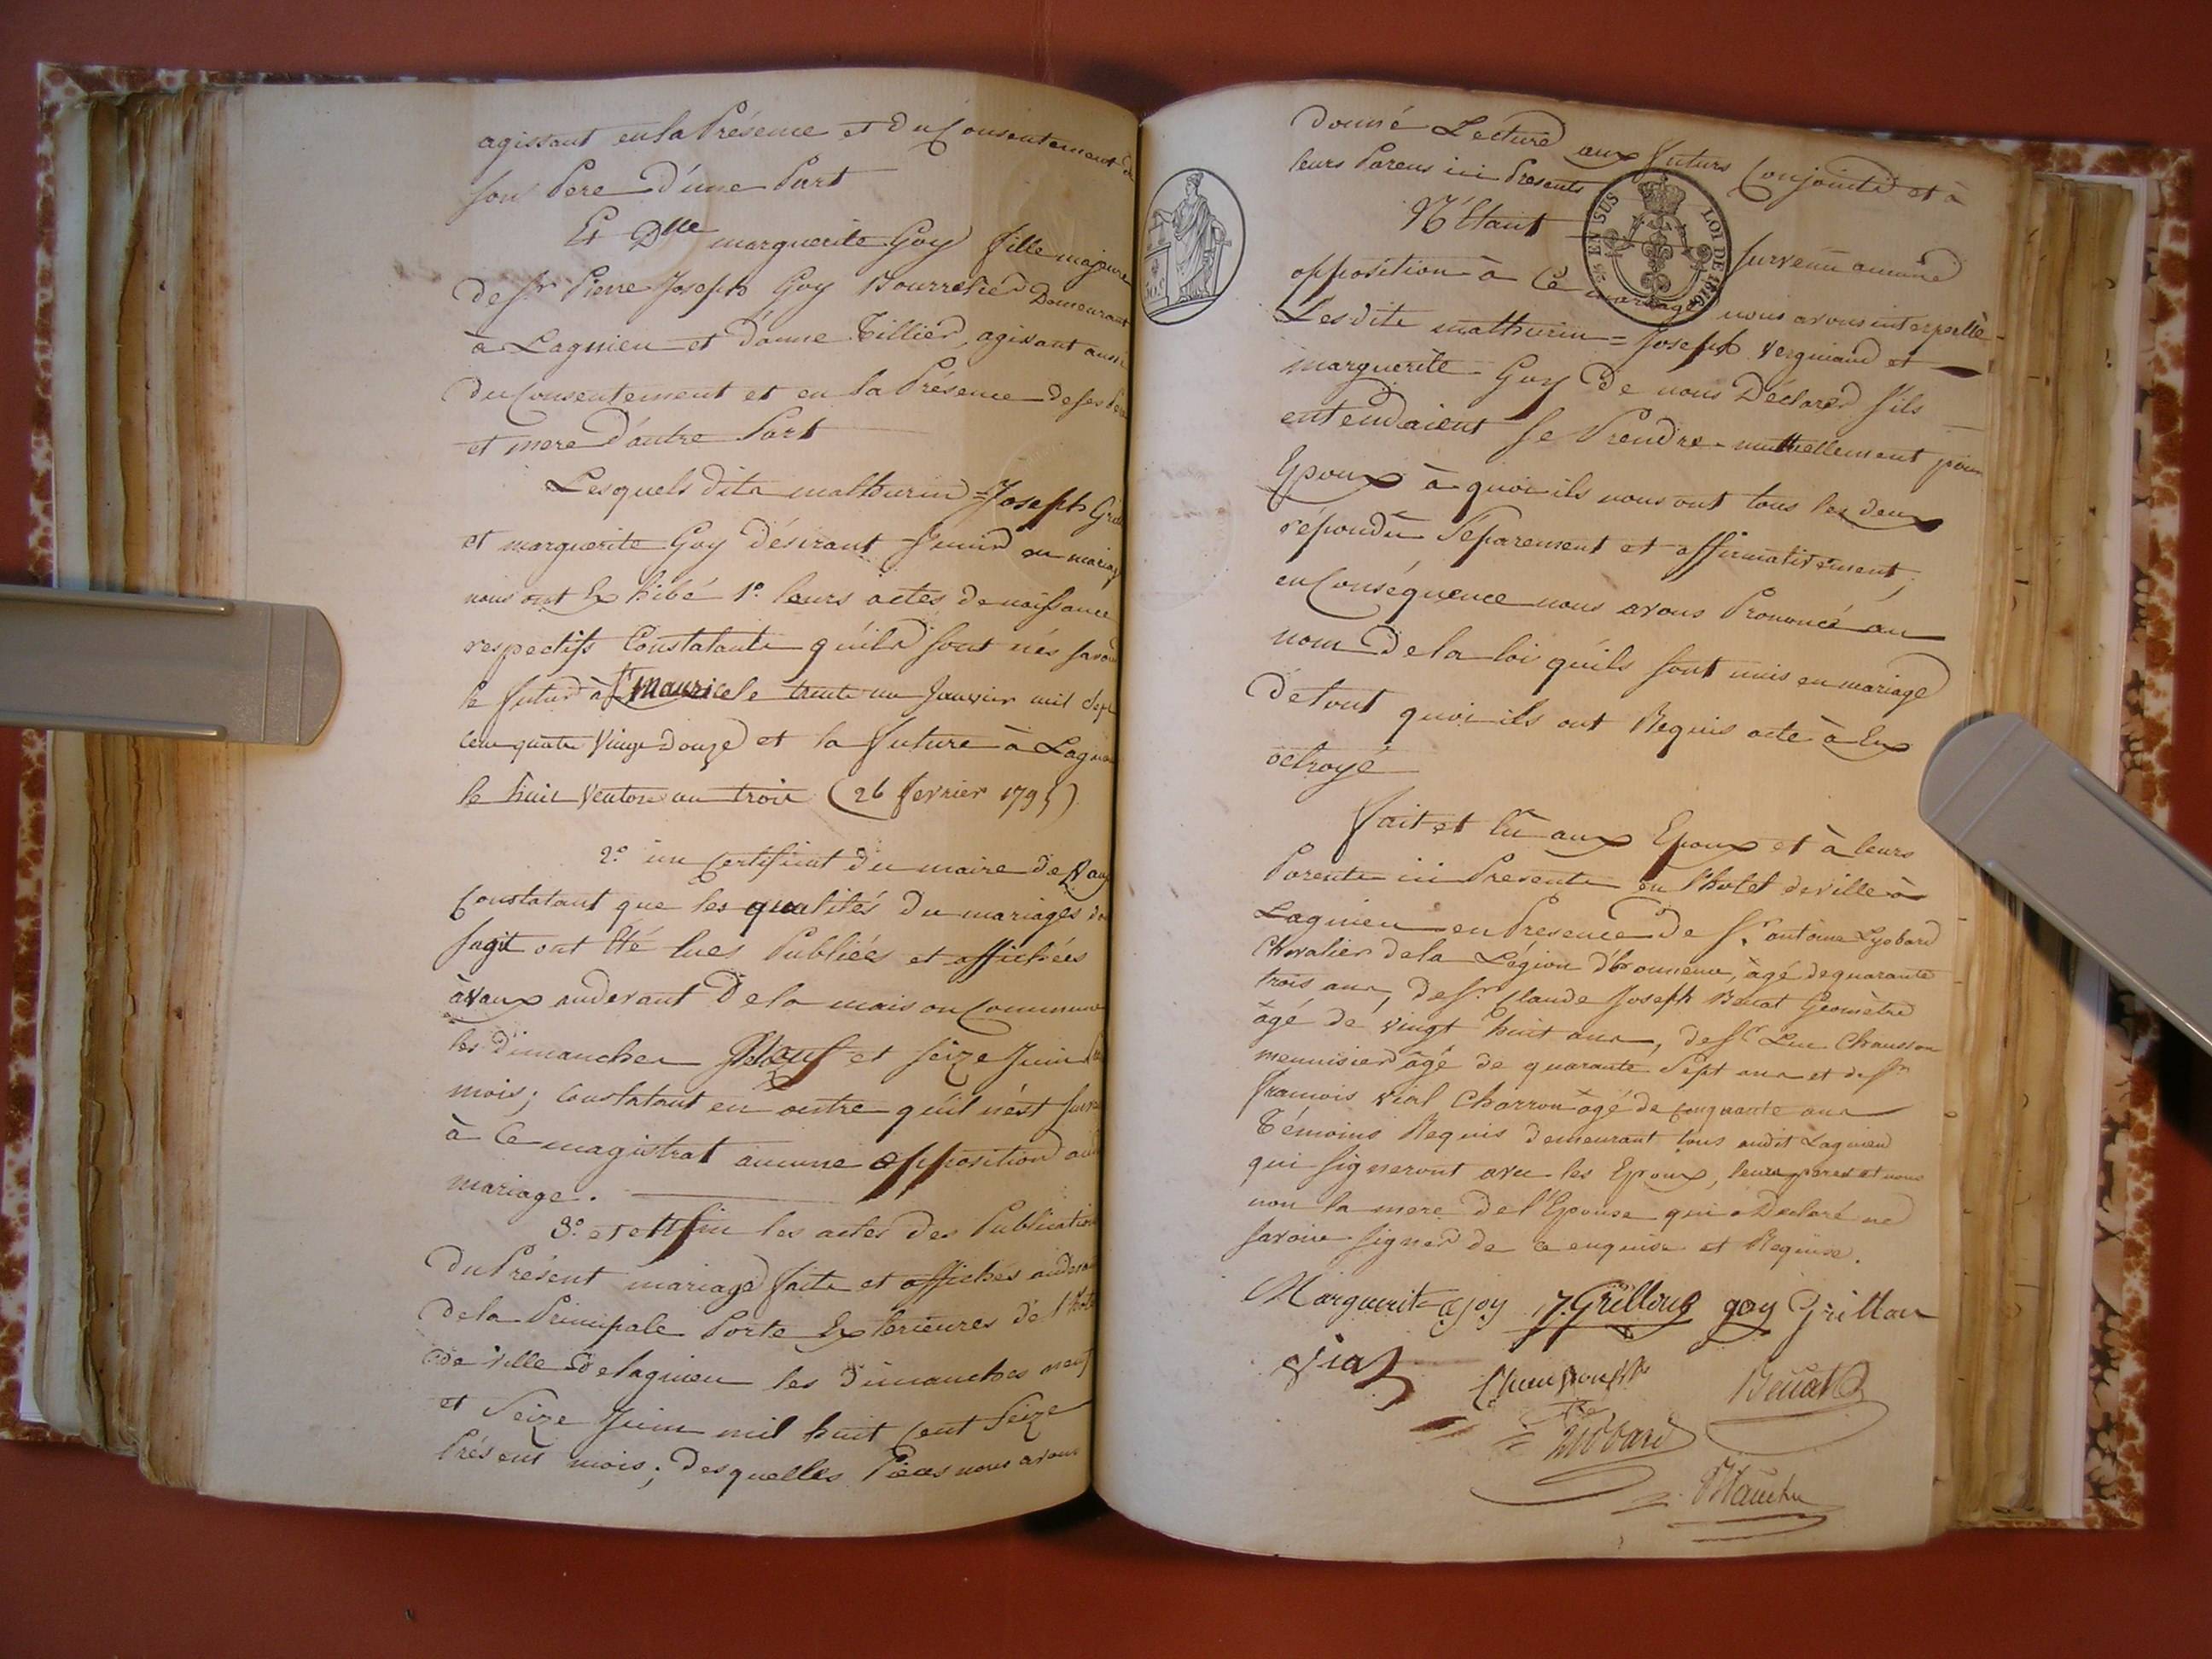 agissant en la Présence et du Consentement de
son Pere d'une Part
Et Dlle marguerite Goy fille majeure
de sr Pierre Joseph Goy Bourrelier Demeurant
à Lagnieu et d'anne Tillier, agissant aussi
du Consentement et en la Présence de ses Pere
et mere d'autre Part
Lesquels dits mathurin = Joseph
et marguerite Goy désirant s'unir en mariage
nous ont Exhibé 1º leurs actes de naissance
respectifs Constatants qu'ils sont nés savoir
le futur à St maurice le trente un Janvier mil sept
cent quatre Vingt Douze et la future à Lagnieu
le huit Ventose an trois (26 fevrier 1795)
2º un Certificat du maire de Vaux
Constatant que les qualités du mariage dont
s'agit ont été lues Publiées et affichées
à Vaux audevant De la maison Commune
les dimanches Neuf et seize Juin
mois; constatant en outre qu'il n'est
à Ce magistrat aucune opposition audit
mariage.
3º et enfin les actes des Publications
du Présent mariage faits et affichés audevant
de la Principale Porte Exterieures de l'hotel
de Ville de lagnieu les dimanches neuf
et Seize Juin mil huit Cent Seize
Présent mois; desquelles Pièces nous avons
donné Lecture aux futurs Conjoints et à
leurs Parens ici Presents
25 EN SUS
LOI DE 1816
N'étant survenu aucune
opposition à Ce mariage nous avons interpellé
Lesdits mathurin = Joseph Verguiand et
marguerite Goy de nous Déclarer s'ils
entendaient se Prendre mutuellement pour
Epoux à quoi ils nous ont tous les deux
répondu Séparement et affirmativement,
en Conséquence nous avons Prononcé au
nom de la loi qu'ils sont unis en mariage
de tout quoi ils ont Requis acte à Eux
octroyé
fait et lu aux Epoux et à leurs
Parents ici Presents en l'hotel de ville à
Lagnieu en Presence de sr antoine Lyobard
Chevalier de la Légion d'honneur, âgé de quarante
trois ans, de sr Claude Joseph Benat Géomètre
âgé de vingt huit ans, de sr Luc Chausson
menuisier âgé de quarante Sept ans et de sr
francois Vial Charron âgé de cinquante ans
Témoins Requis demeurant tous audit Lagnieu
qui signeront avec les Epoux, leurs peres et nous
non la mere de l'Epouse qui a Declaré ne
savoir signer de ce enquise et Requise.
Marguerite Goy J. Grilloud goy Grillou
Vial
Benat